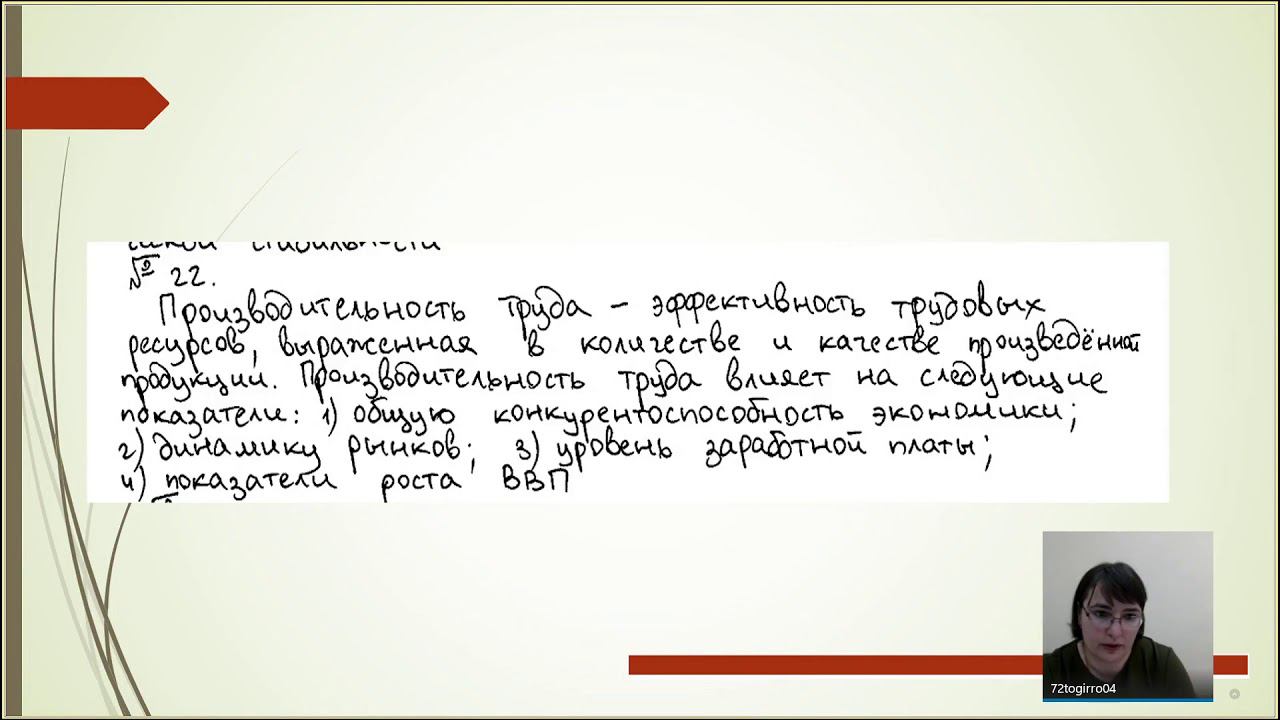 ческой стабильности
№ 22.
Производительность труда – эффективность трудовых
ресурсов, выраженная в количестве и качестве произведённой
продукции. Производительность труда влияет на следующие
показатели: 1) общую конкурентоспособность экономики;
2) динамику рынков; 3) уровень заработной платы;
4) показатели роста ВВП
72togirro04